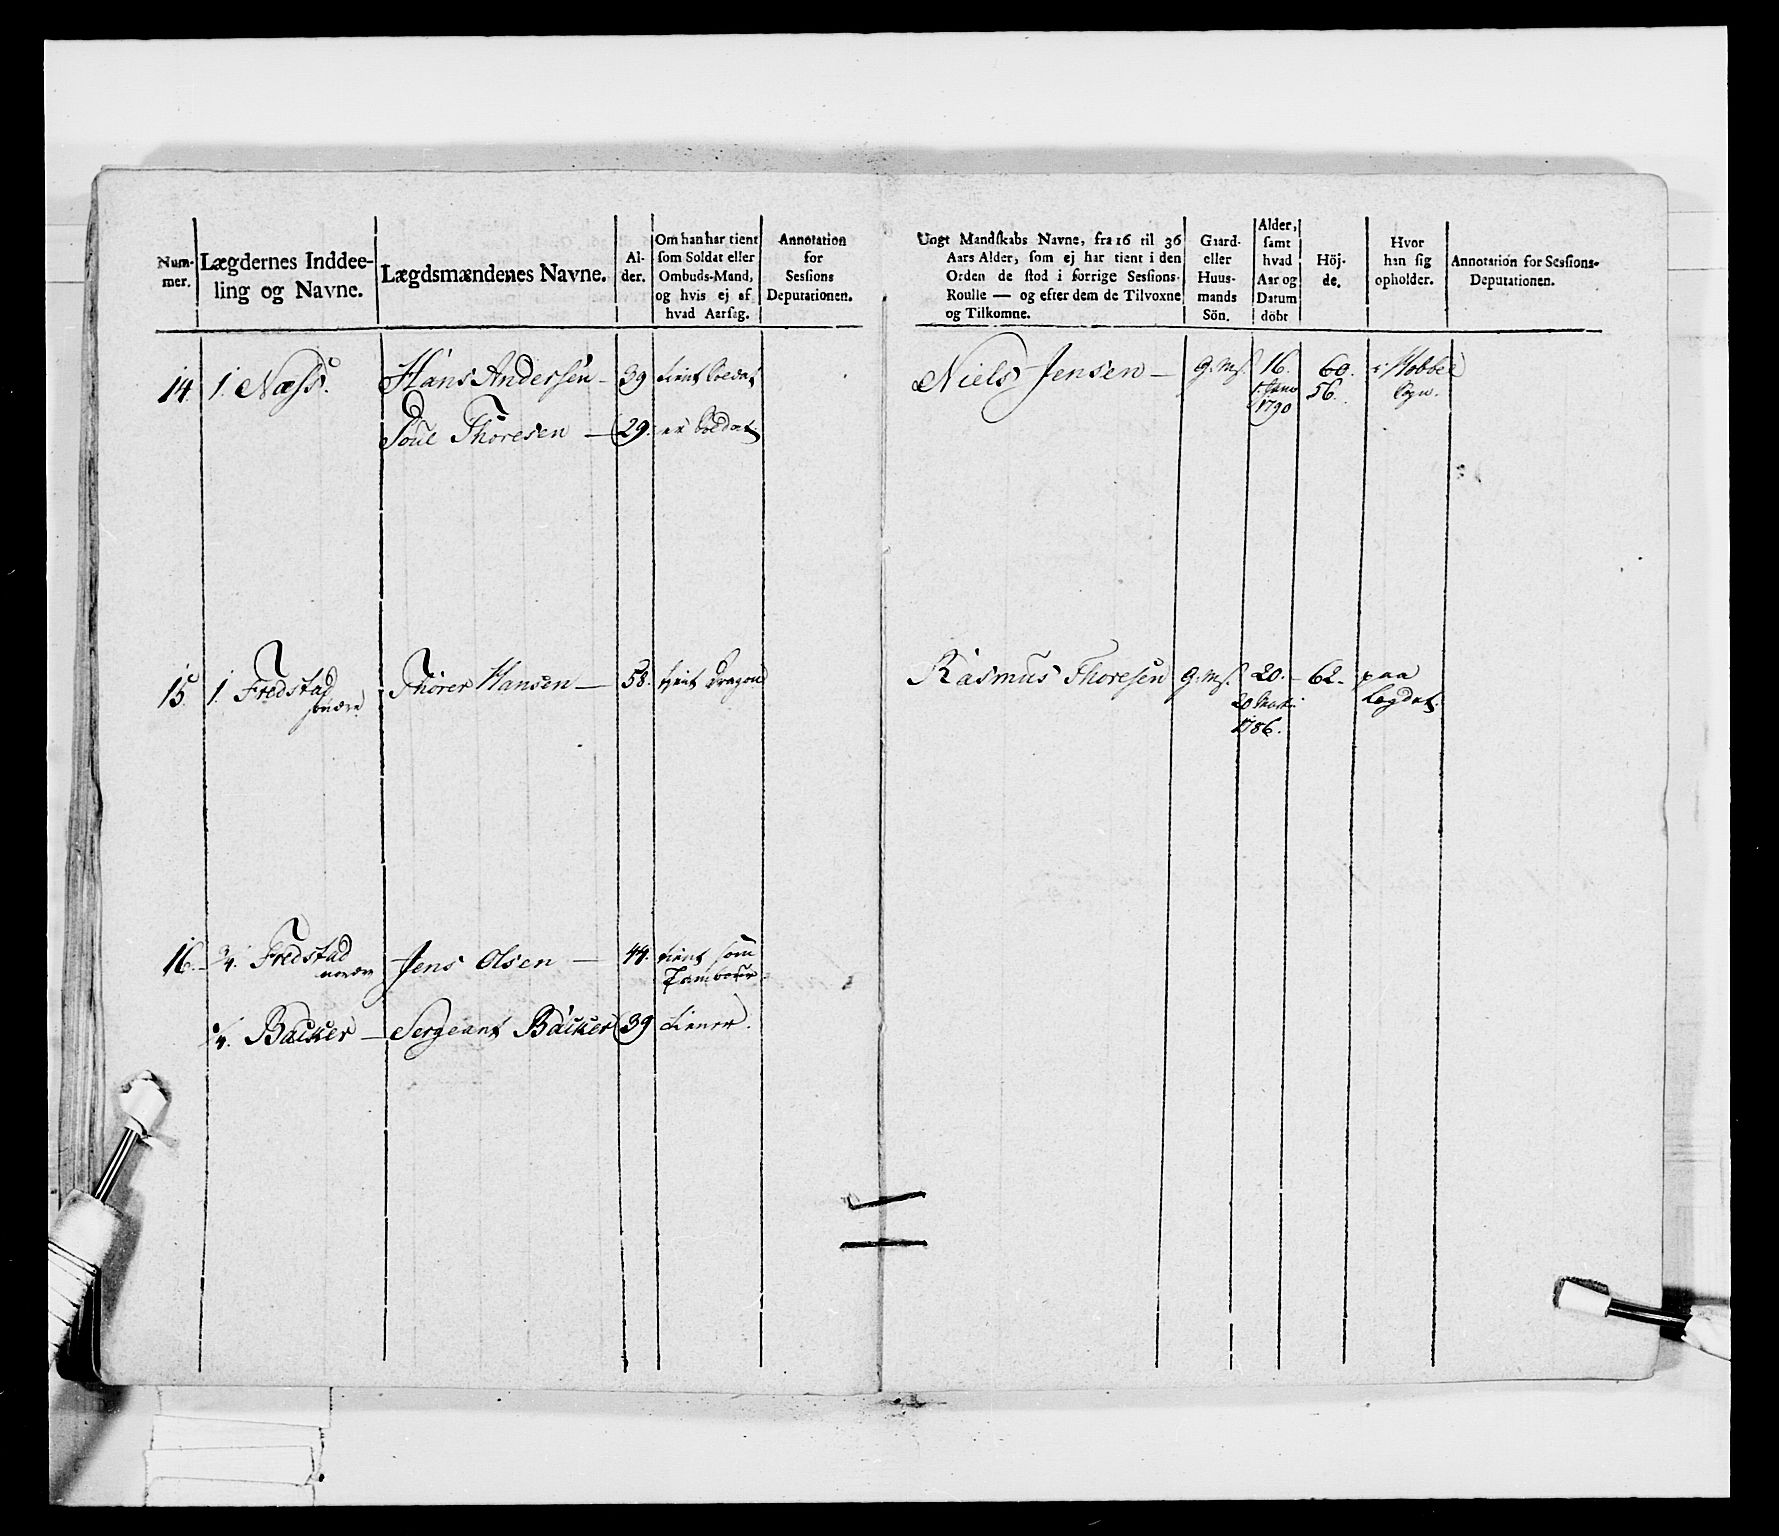 Num-
mer.
Lægdernes Inddee-
ling og Navne.
Lægdsmændenes Navne.
Al-
der.
Om han har tient
som Soldat eller
Ombuds-Mand,
og hvis ej af
hvad Aarsag.
Annotation
for
Sessions
Deputationen.
Ungt Mandskabs Navne, fra 16 til 36
Aars Alder, som ej har tient i den
Orden de stod i forrige Sessions-
Roulle — og efter dem de Tilvoxne
og Tilkomne.
Gaard-
eller
Huus-
mands
Sön.
Alder,
samt
hvad
Aar og
Datum
döbt
Höj-
de.
Hvor
han sig
opholder.
Annotation for Sessions-
Deputationen.
14. 1. Næss. Hans Andersen - 39 tient Soldat
Poul Thoresen - 29. er Soldat
Niels Jensen - G.ms. 16. 60. i
1790 56. Sogn.
15. 1. Fredstad Thorer Hansen - 58. tient Dragon
søndre
Rasmus Thoresen G.ms. 20. - 62. paa
20 Lægdet.
1786.
16. - 3/4. Fredstad Jens Olsen - 44. tient som
nordre Tambour
1/4. Backer - Sergeant Backer 39 tiener.